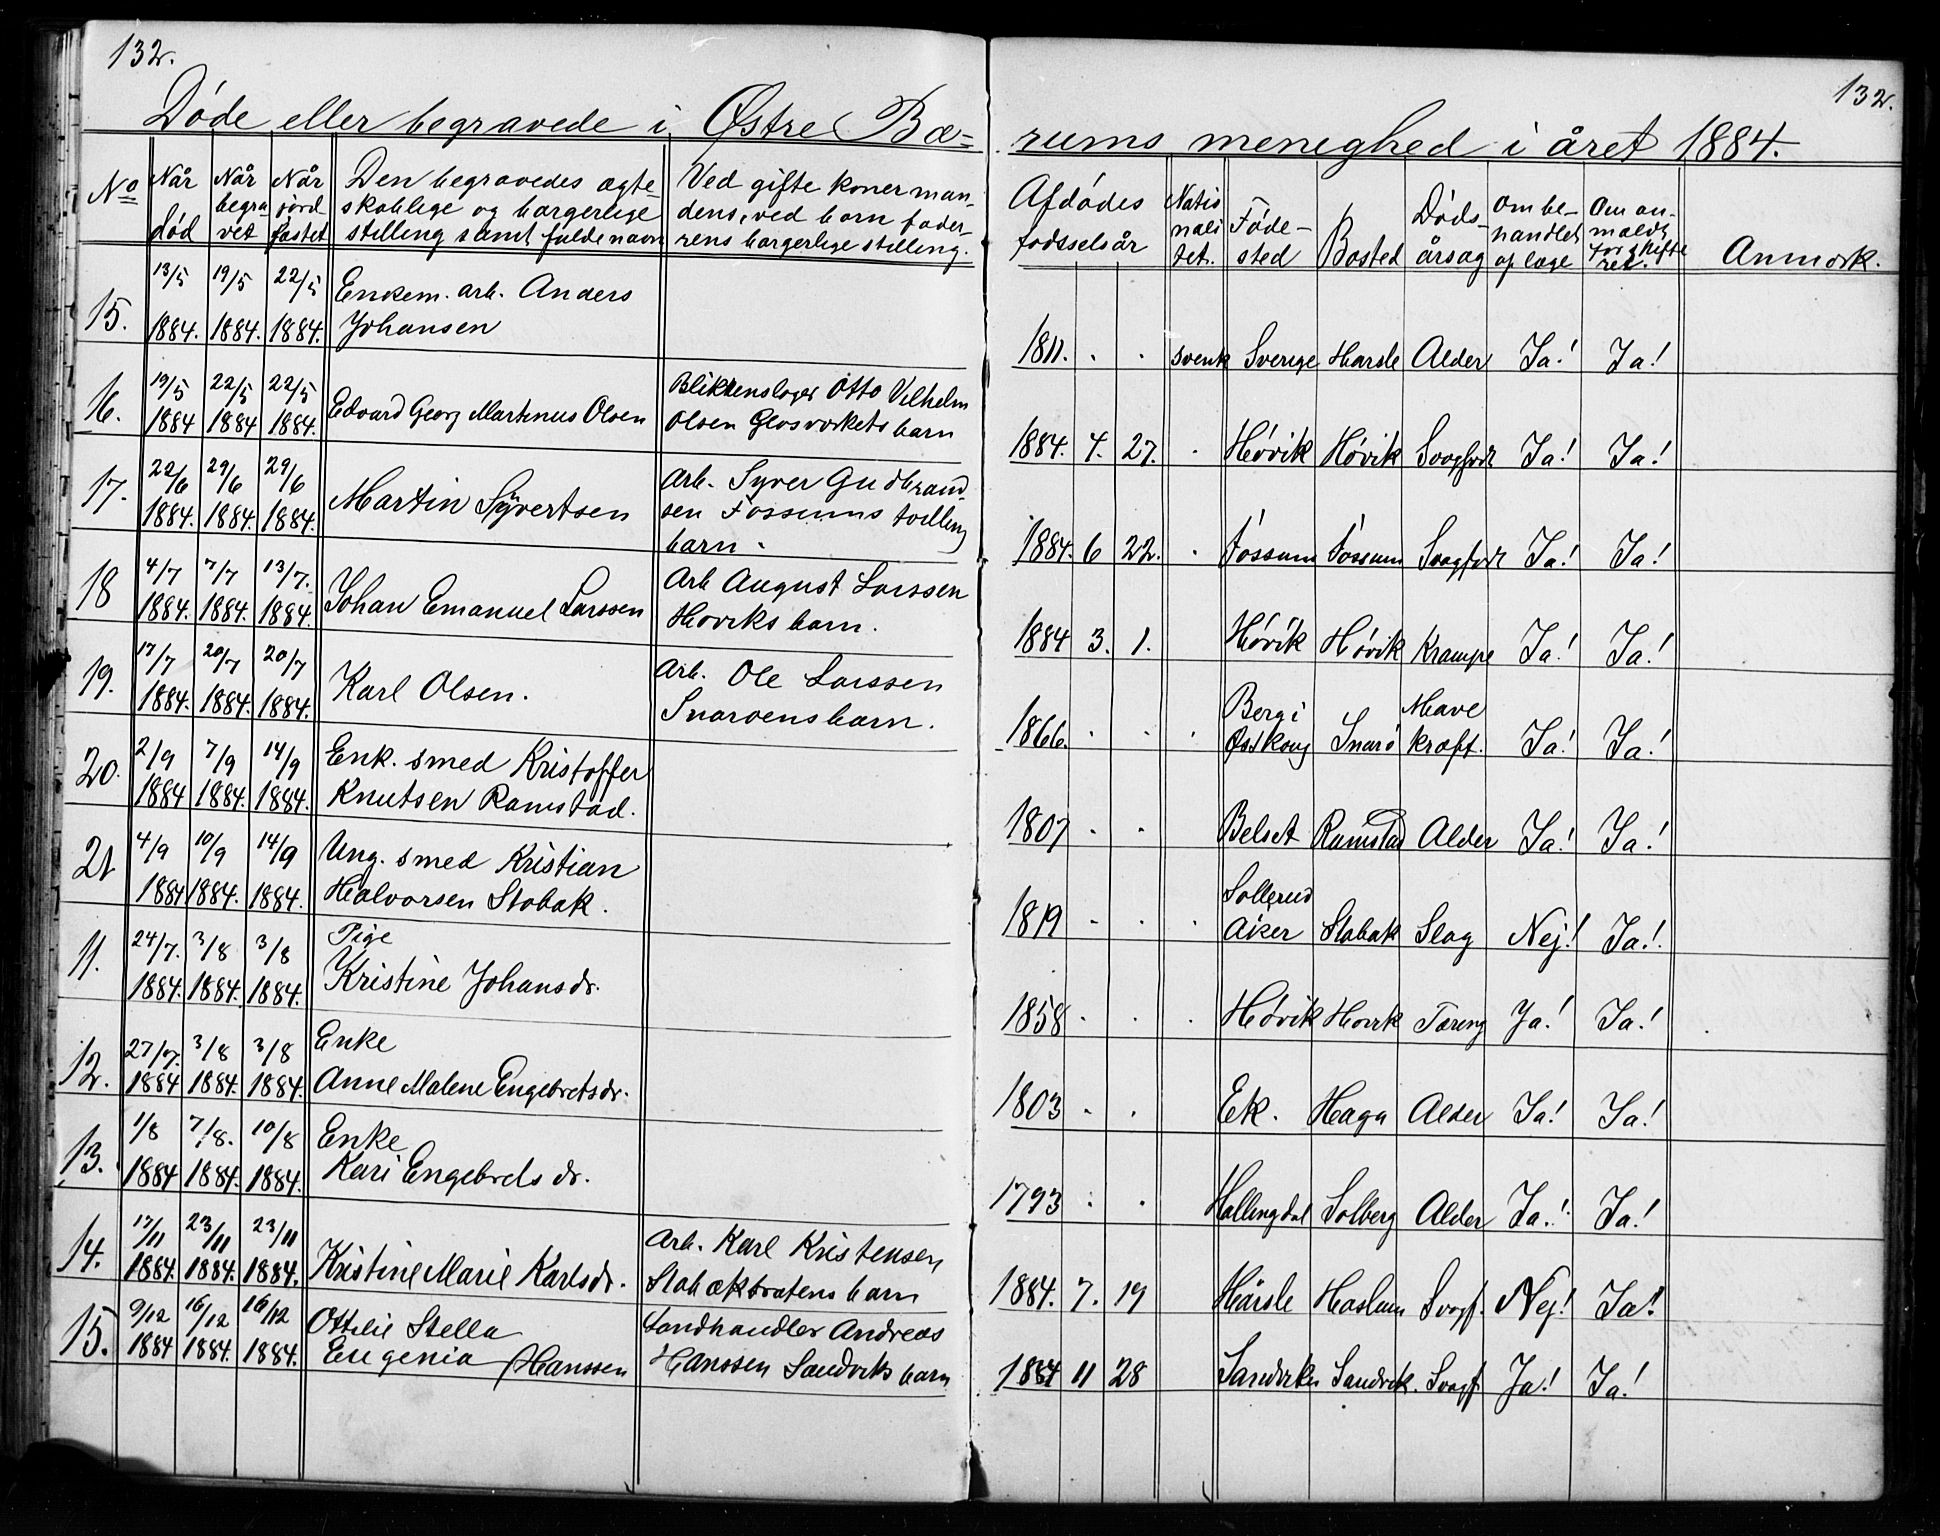 132.
132.
Døde eller begravede i Østre Bæ=
rums menighed i året 1884.
No
Når død
Når begra vet
Når jord fæstet
Den begravedes ægte-
skablige og borgerlige
stilling samt fulde navn
Ved gifte koner man-
dens, ved barn fader-
rens borgerlige stilling.
Afdødes
fødsselsår
Natio nali tet.
Føde-
sted
Bosted
Døds-
årsag
Om be-
handlet
af læge
Om an-
meldt
for skifte
ret.
Anmærk.
15. 13/5 1884. 19/5 1884. 22/5 1884. Enkem. arb. Anders
Johansen
1811. . . svensk Sverige Harsle Alder Ja! Ja!
16. 19/5 1884 22/5 1884 22/5 1884. Edvard Georg Martinus Olsen
Blikkenslager Otto Vilhelm
Olsen Glasværkets barn
1884. 4. 27. . Høvik Høvik Svaghedt Ja! Ja!
17. 22/6 1884. 29/6 1884. 29/6 1884. Martin Syvertsen
Arb. Syver Gudbrand-
sen Fossums tvilling
barn.
1884. 6 22. . Fossum Fossum Svaghedt Ja! Ja!
18 4/7 1884. 7/7 1884. 13/7. 1884. Johan Emanuel Larssen
Arb August Larssen
Høviks barn.
1884 3. 1. Høvik Høvik Krampe Ja! Ja!
19. 17/7 1884. 20/7 1884. 20/7 1884. Karl Olsen.
Arb. Ole Larssen
Snarøens barn.
1866. . . . Berg i
Østkoug Snarø Mave
kræft. Ja! Ja!
20. 2/9 1884 7/9 1884. 14/9 1884. Enk. smed Kristoffer
Knutsen Ramstad.
1807 . . Belset Ramstad Alder Ja! Ja!
21 4/9 1884 10/9 1884. 14/9 1884. Ung. smed Kristian
Halvorsen Stabæk.
1819 . . . Sollerud
Aker Stabak Slag Nej! Ja!.
11. 24/7. 1884. 3/8 1884. 3/8 1884. Pige
Kristine Johansdr.
1858 . . . Høvik Hovik Tæring Ja! Ja!
12. 27/7. 1884 3/8 1884. 3/8 1884. Enke
Anne Malene Engebretsdr.
1803 . . Ek. Haga Alder Ja! Ja!
13. 1/8 1884 7/8. 1884. 10/8 1884. Enke
Kari Engebretsdr.
1793 . . Hallingdal Solberg Alder Ja! Ja!
14. 17/11 1884. 23/11 1884. 23/11 1884. Kristine Marie Karlsdr.
Arb. Karl Kristensen
Stabækbratens barn
1884. 7. 19 Hårsle Haslum Svagh. Nej! Ja!
15. 9/12 1884 16/12 1884. 16/12 1884. Ottilie Stella
Eugenia Hanssen
Landhandler Andreas
Hanssen Sandviks barn
1884 11 28 Sandviken Sandvik. Svagh. Ja! Ja!